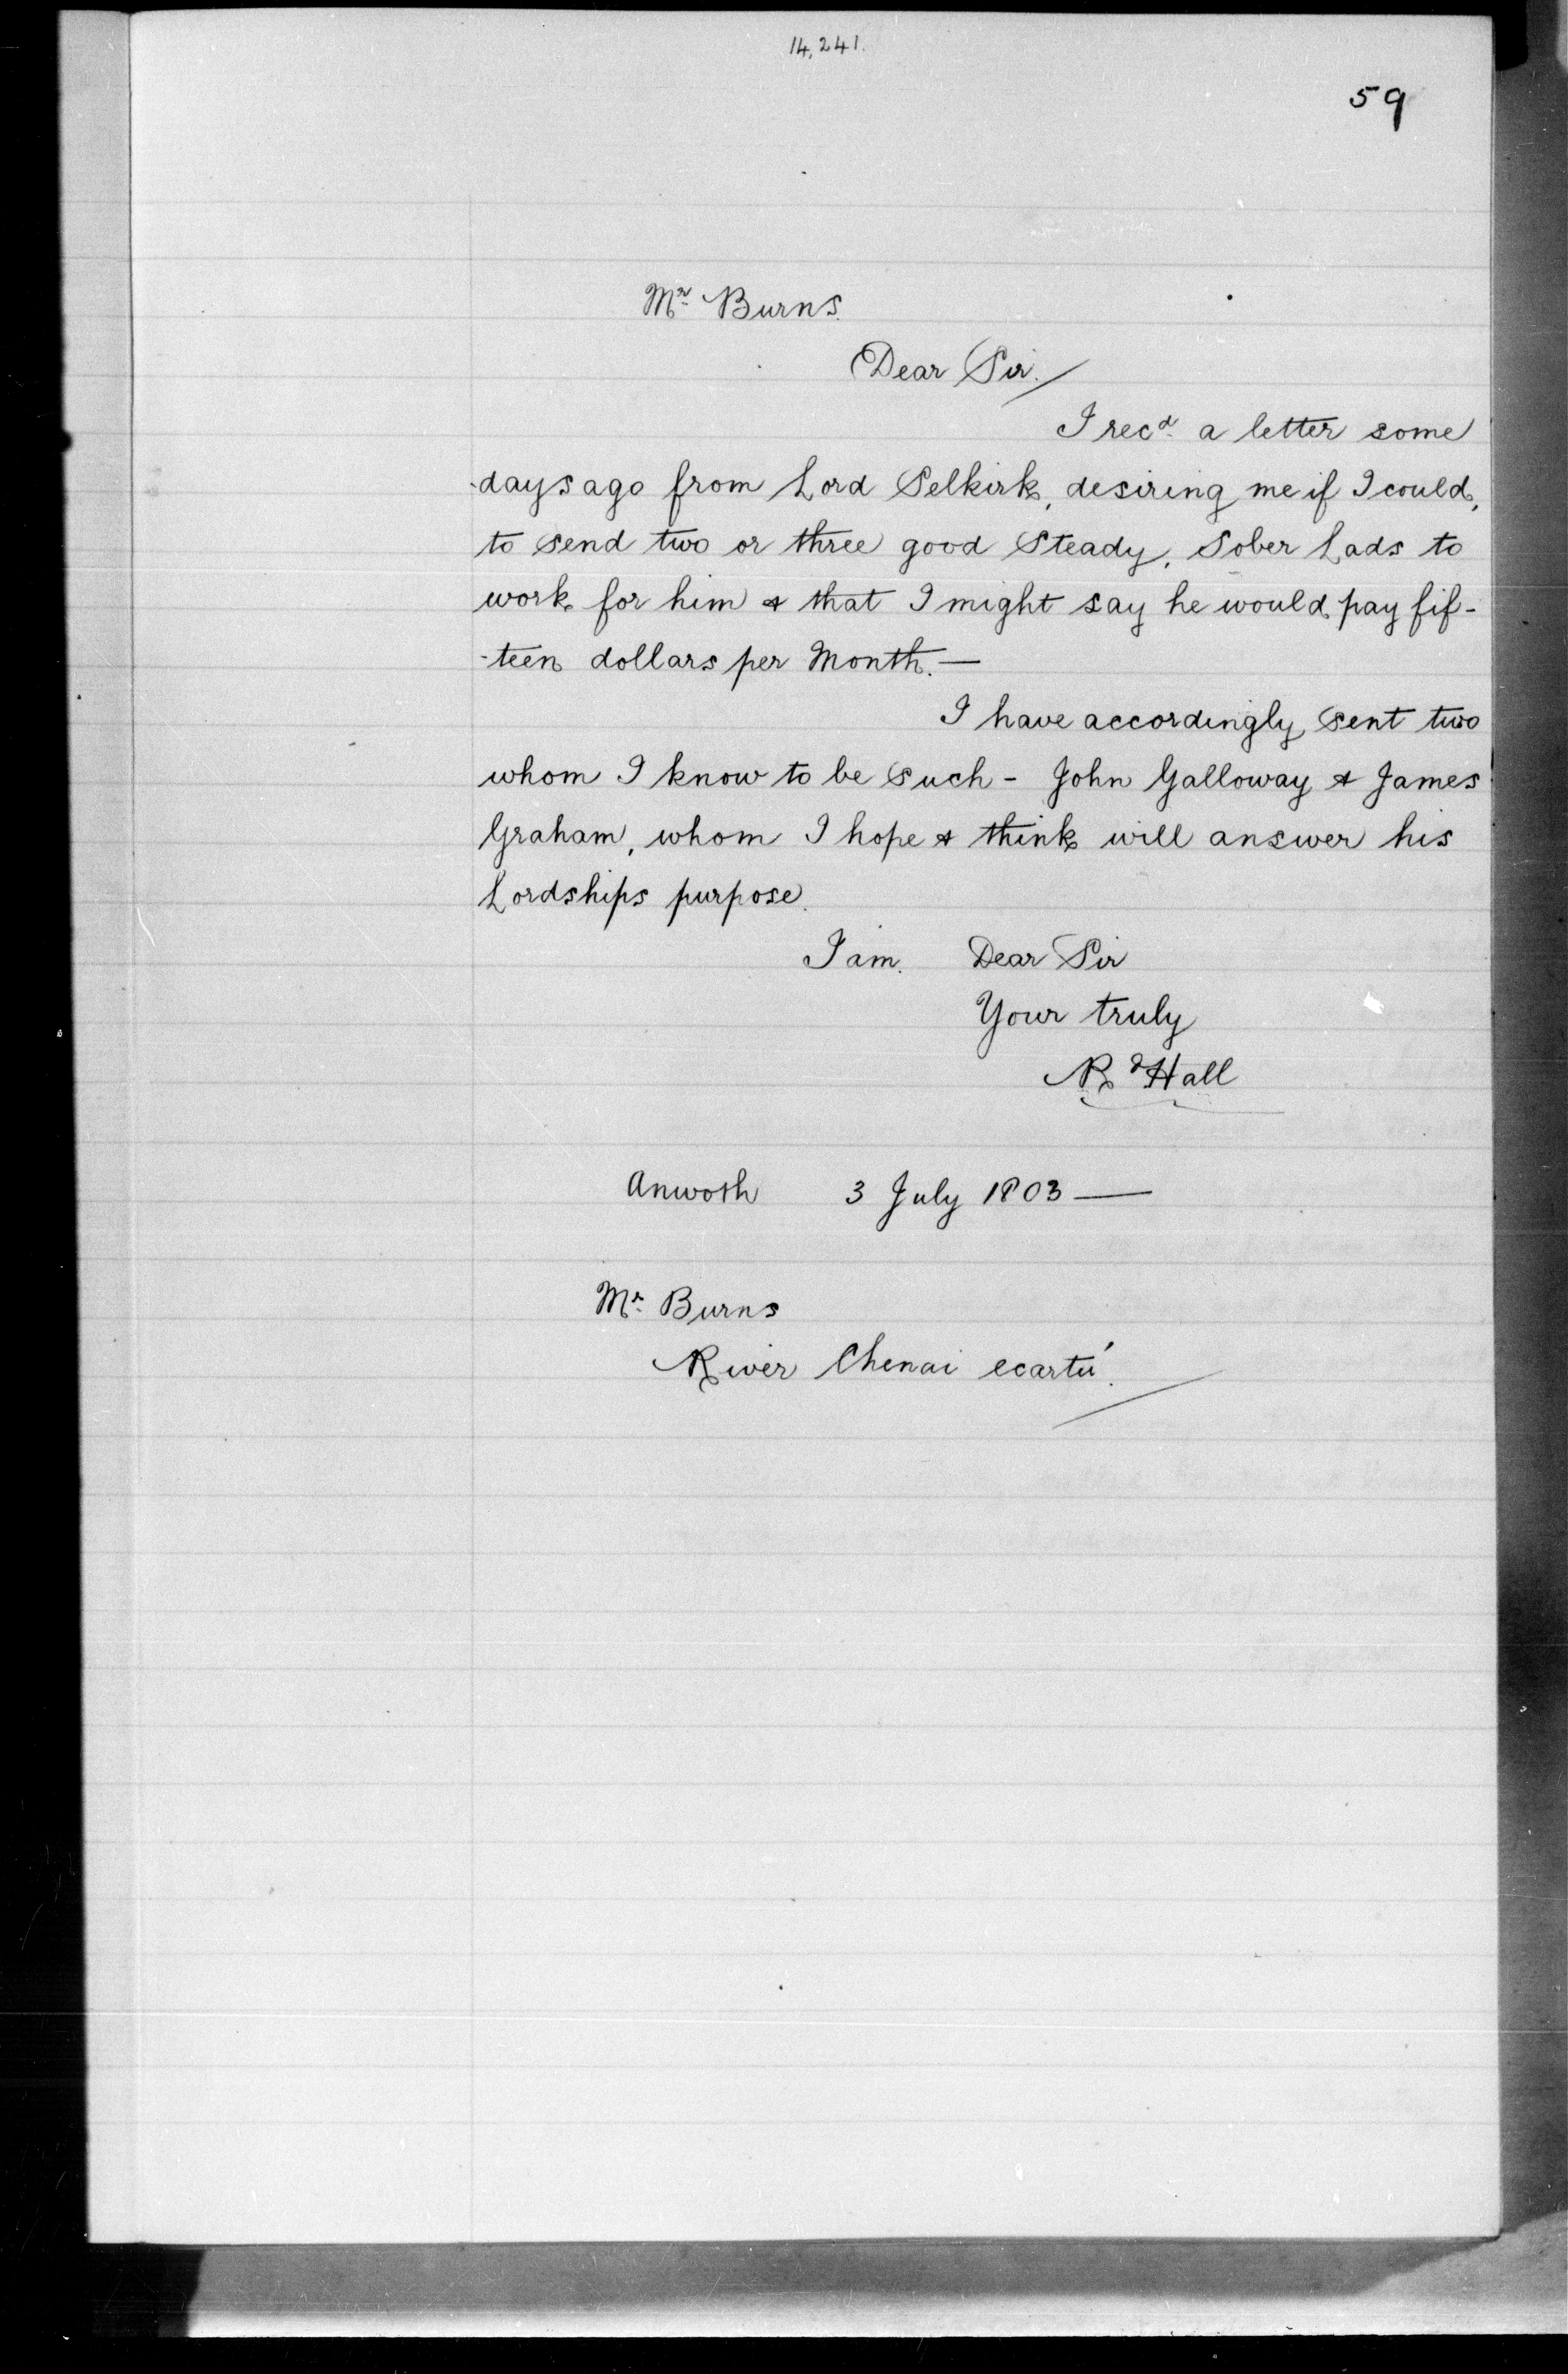 14,241.
59
Mr Burns.
Dear Sir./
I recd a letter some
days ago from Lord Selkirk, desiring me if I could,
to send two or three good Steady, Sober Lads to
work for him & that I might say he would pay fif-
-teen dollars per Month.—
I have accordingly sent two
whom I know to be such - John Galloway & James
Graham, whom I hope & think will answer his
Lordships purpose.
I am. Dear Sir
Your truly
Rd Hall
Anwoth 3 July 1803—
Mr Burns
River Chenai ecarté.